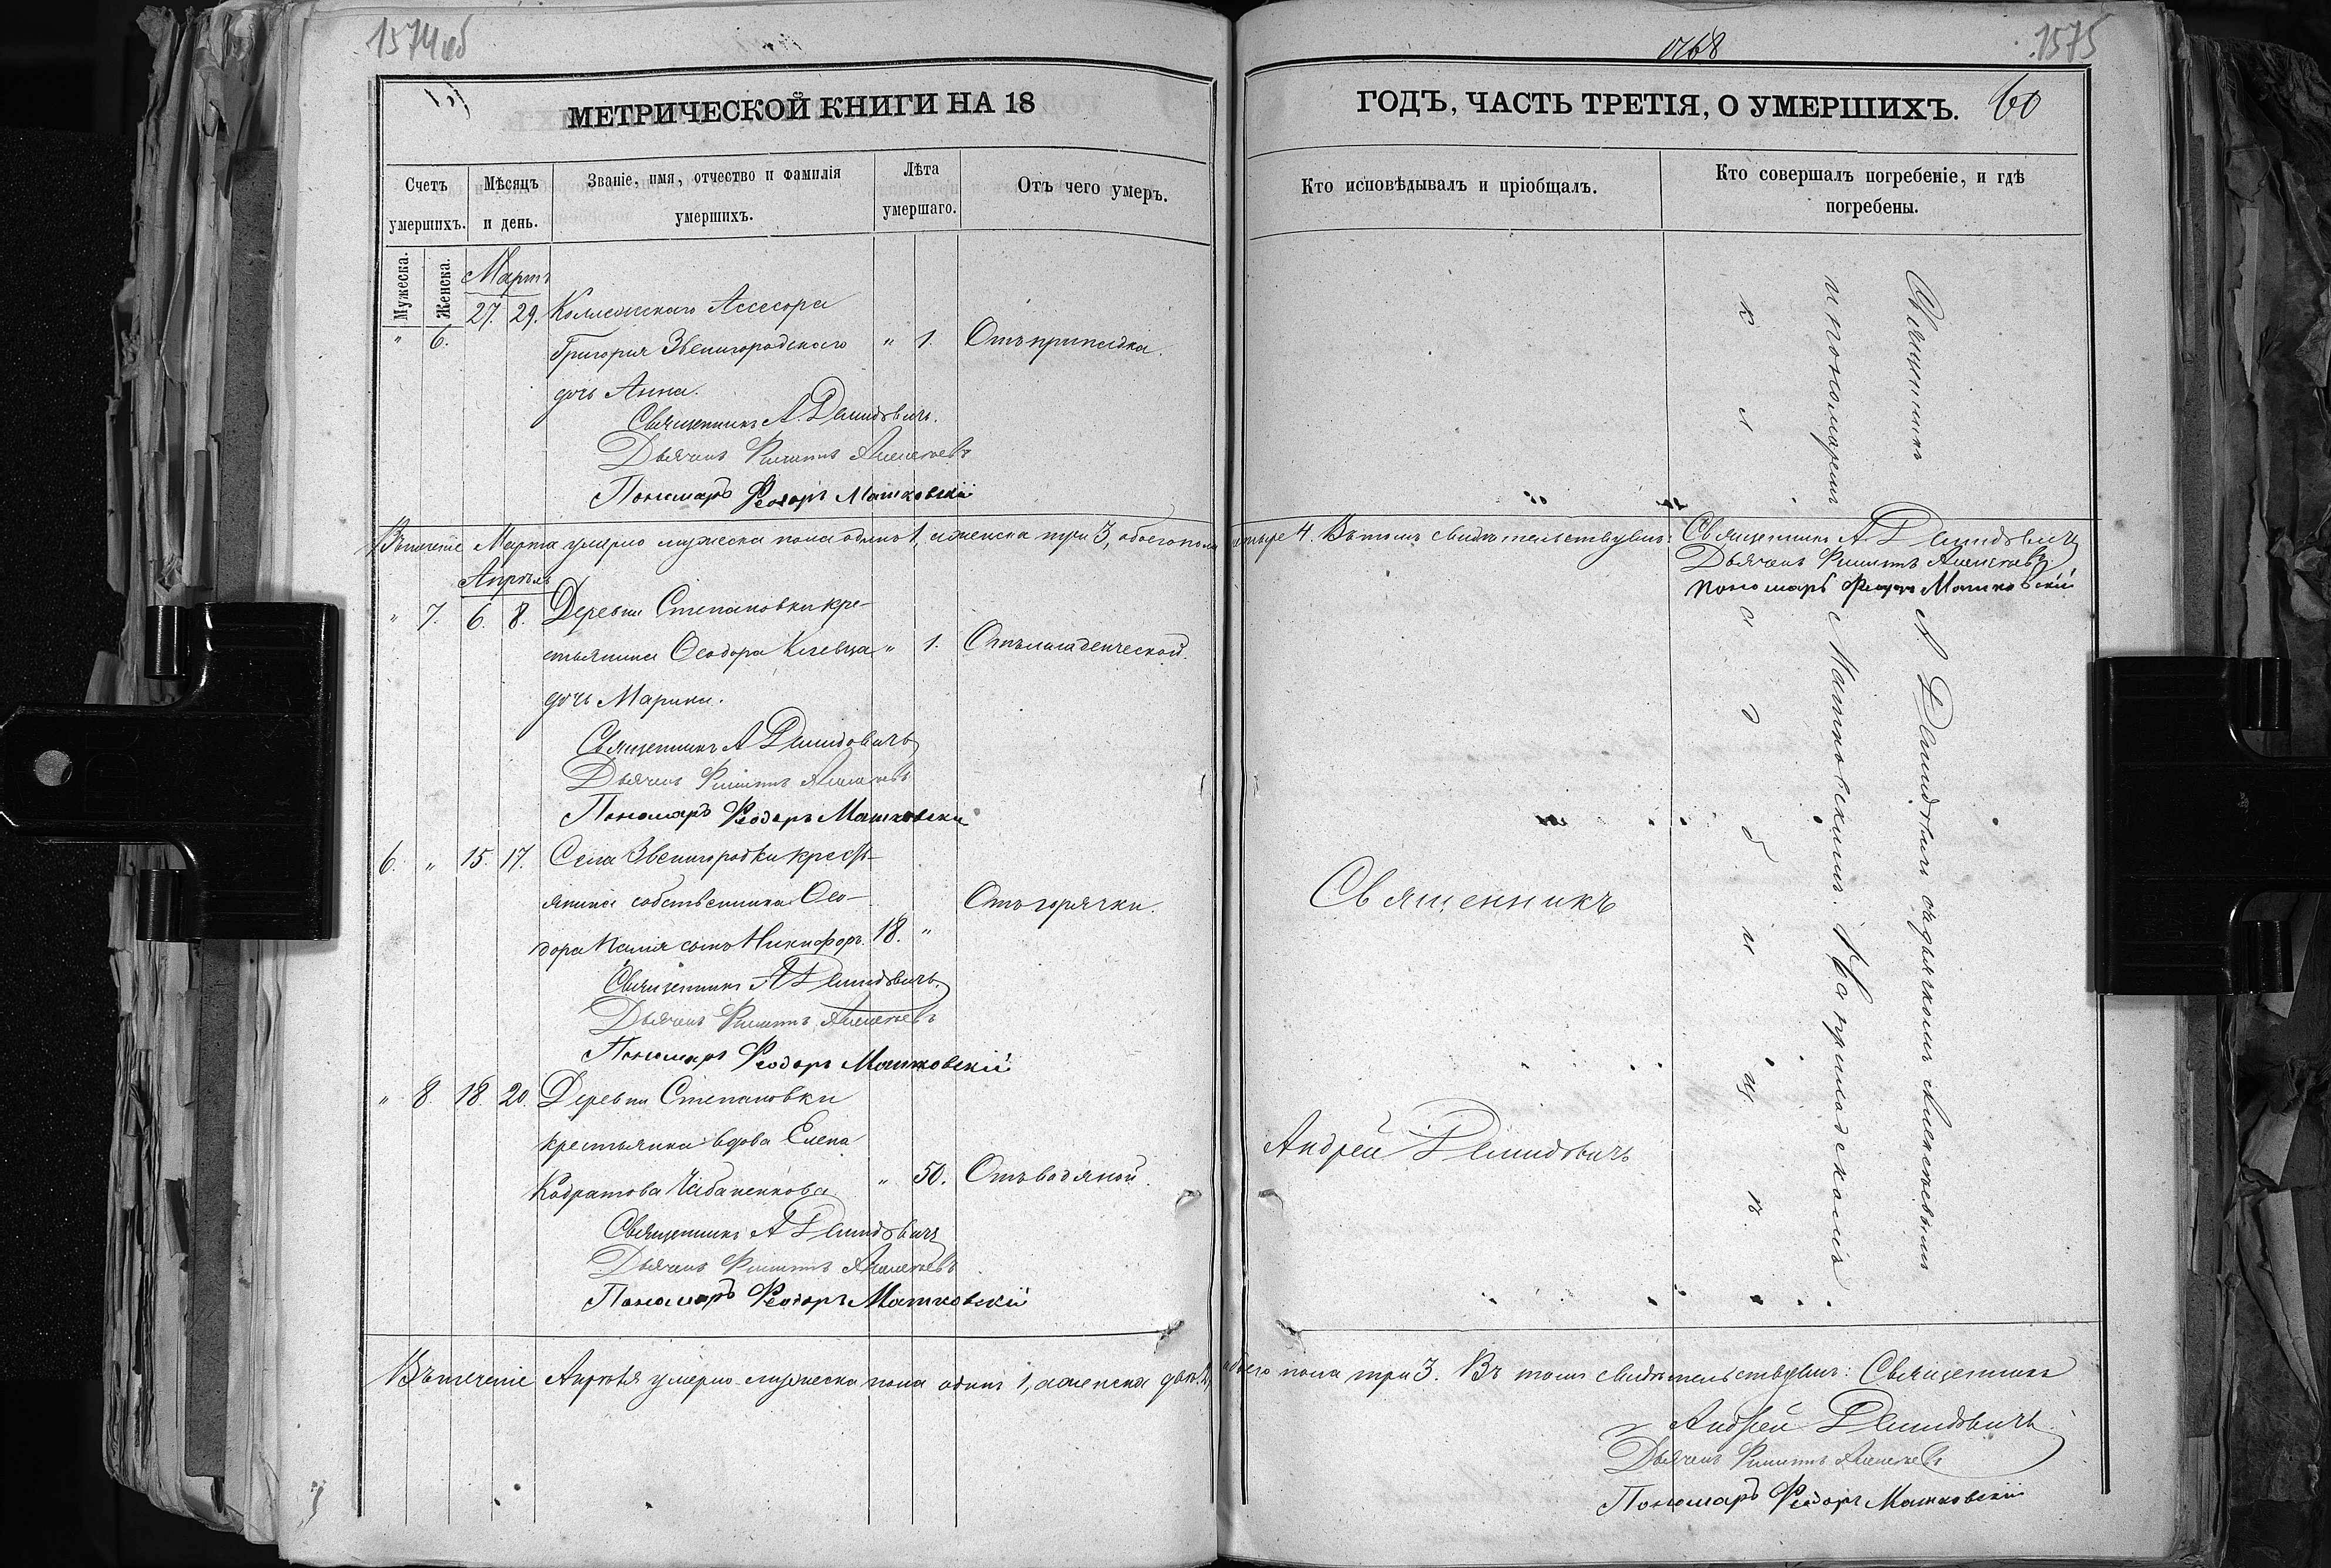 1574об
МЕТРИЧЕСКОЙ КНИГИ НА 18
Счетъ умершихъ.
Мѣсяцъ и день.
Званіе, имя, отчество и фамилія умершихъ.
Лѣта умершаго.
Отъ чего умеръ.
Мужеска.
Женска.
Мартъ
27. 29. Коллежскаго Ассесора
" 6. Григорія Звенигородскаго " 1. Отъ припадка.
дочь Анна.
Священникъ А. Демидовичъ.
Дьячекъ Филиппъ Алексѣевъ
Пономарь Феодоръ Машковскій
Въ теченіе Марта умерло мужеска пола одинъ 1, а женска три 3, обоего пола
Апрѣль
" 7. 6. 8. Деревни Степановки кре-
стьянина Ѳеодора Клевца " 1. Отъ младенческой.
дочь Марина.
Священникъ А Демидовичъ
Дьячекъ Филиппъ Алексѣевъ
Пономарь Феодоръ Машковскій
6. " 15. 17. Села Звенигородки кресть-
янина собственника Ѳео- Отъ горячки.
дора Палія сынъ Никифоръ. 18. "
Священникъ А Демидовичъ
Дьячекъ Филиппъ Алексѣевъ
Пономарь Феодоръ Машковскій
" 8. 18. 20. Деревни Степановки
крестьянка вдова Елена
Кодратова Чабаненкова " 50. Отъ водяной.
Священникъ А Демидовичъ
Дьячекъ Филиппъ Алексѣевъ
Пономарь Феодоръ Машковскій
Въ теченіе Апрѣля умерло мужеска пола одинъ 1, а женска двѣ 2,
1575
ГОДЪ, ЧАСТЬ ТРЕТІЯ, О УМЕРШИХЪ. 60
Кто исповѣдывалъ и пріобщалъ.
Кто совершалъ погребеніе, и гдѣ погребены.
четыре 4. Въ томъ свидѣтельствуемъ: Священникъ А Демидовичъ
Дьячекъ Филиппъ Алексѣевъ
Пономарь Феодоръ Машковскій
Священникъ
Андрей Демидовичъ
Священникъ А Демидовичъ съ дьячкомъ Алексѣевымъ
и пономаремъ Машковскимъ. На приходскомъ
кладбищѣ.
обоего пола три 3. Въ томъ свидѣтельствуемъ: Священникъ
Андрей Демидовичъ
Дьячекъ Филиппъ Алексѣевъ
Пономарь Феодоръ Машковскій